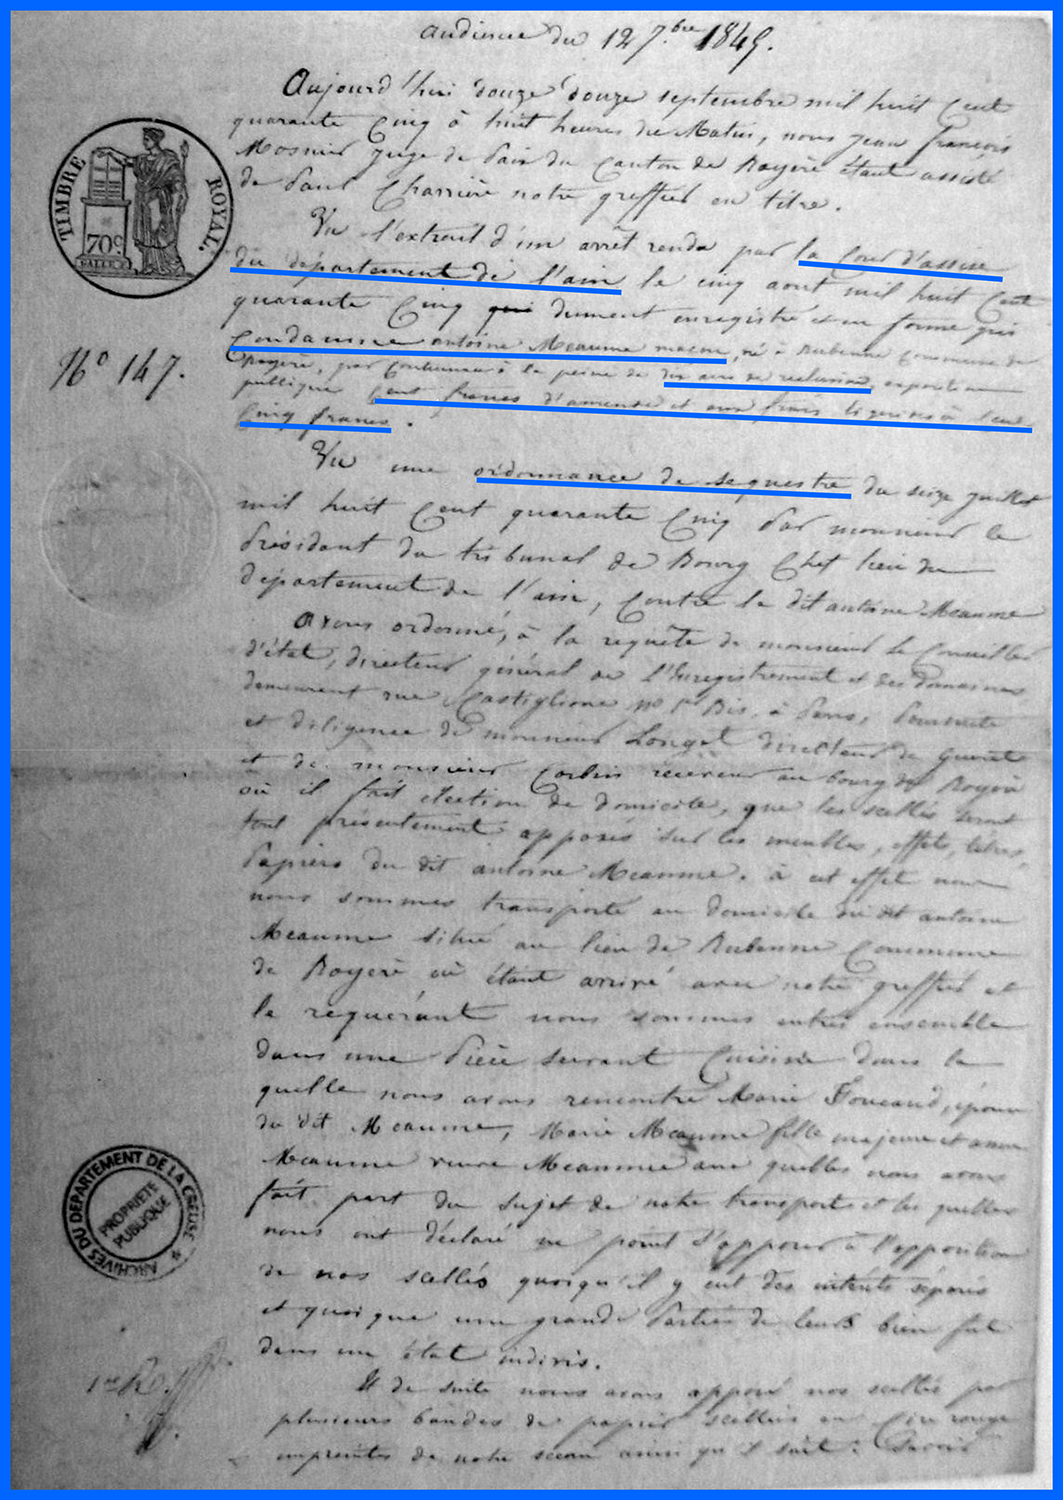 audience du 12 7.bre 1845.
Aujourd'hui douze douze septembre mil huit Cent
quarante Cinq à huit heures du Matin, nous jean françois
Mosnier juge de Paix du Canton de Royère étant assisté
de Paul Charrière notre greffier en titre.
TIMBRE ROYAL.
70c
Vu l'extrait d'un arrêt rendu par la Cour d'assise
du département de l'ain le cinq aout mil huit Cent
quarante Cinq qui dument enregistré et en forme qui
Condamne antoine Meaume maçon, né à Rubenne Commune de
Royère, par Contumace à la peine de dix ans de reclusion, exposition
N° 147.
publique Cent francs d'amende et aux frais liquidés à
Cinq francs.
Vu une ordonnance de sequestre du seize juillet
mil huit Cent quarante Cinq Par monsieur le
Président du tribunal de Bourg Chef lieu du
département de l'ain, Contre le dit antoine Meaume
Avons ordonné, à la requête de monsieur le Conseiller
d'état, directeur général de l'Enregistrement et des Domaines
demeurant rue Castiglione n° 1er Bis, à Paris, Poursuite
et diligence de monsieur Longet directeur de Gueret
et de monsieur Corbin receveur au bourg de Royère
où il fait élection de domicile, que les scellés seront
tout présentement apposés sur les meubles, effets, titres,
Papiers du dit antoine Meaume. à cet effet nous
nous sommes transporté au domicile du dit antoine
Meaume situé au lieu de Rubenne Commune
de Royère où étant arrivé avec notre greffier et
le requérant nous sommes entrés ensemble
dans une Pièce servant Cuisine dans la
quelle nous avons rencontré Marie Foucaud, épouse
du dit Meaume, Marie Meaume fille majeure et anne
Meaume veuve Meaume aux quelles nous avons
fait part du sujet de notre transport et les quelles
nous ont déclaré ne point s'opposer à l'apposition
de nos scellés quoiqu'il y eut des intérêts séparés
et quoique une grande Partie de leurs bien fut
dans un état indivis.
ARCHIVES DU DEPARTEMENT DE LA CREUSE
PROPRIÉTÉ
PUBLIQUE
1er R.
Et de suite nous avons apposé nos scellés par
plusieurs bandes de papier scellées en Cire rouge
empreintes de notre sceau ainsi qu'il suit: Savoir